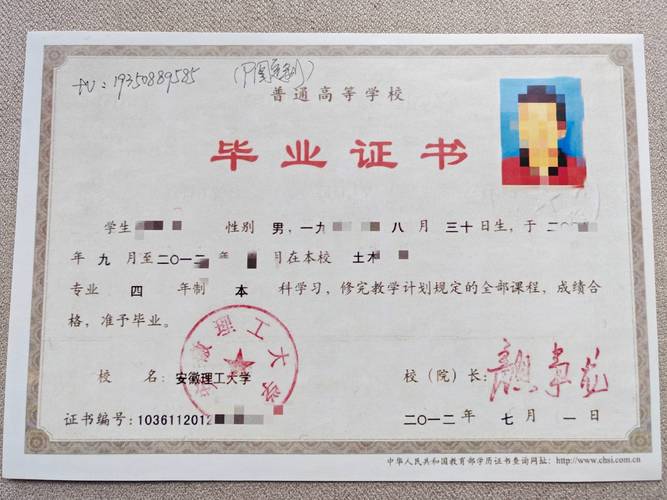 19350889585
普通高等学校
毕业证书
学生 性别 男,一九 八月三十日生,于二〇
年九月至二〇一二年 月在本校 土木
专业 四 年制 本 科学习,修完教学计划规定的全部课程,成绩合
格,准予毕业。
安徽理工大学
校 名:安徽理工大学 校(院)长:
证书编号:1036112012 二〇一二年 七月 一日
中华人民共和国教育部学历证书查询网址:http://www.chsi.com.cn